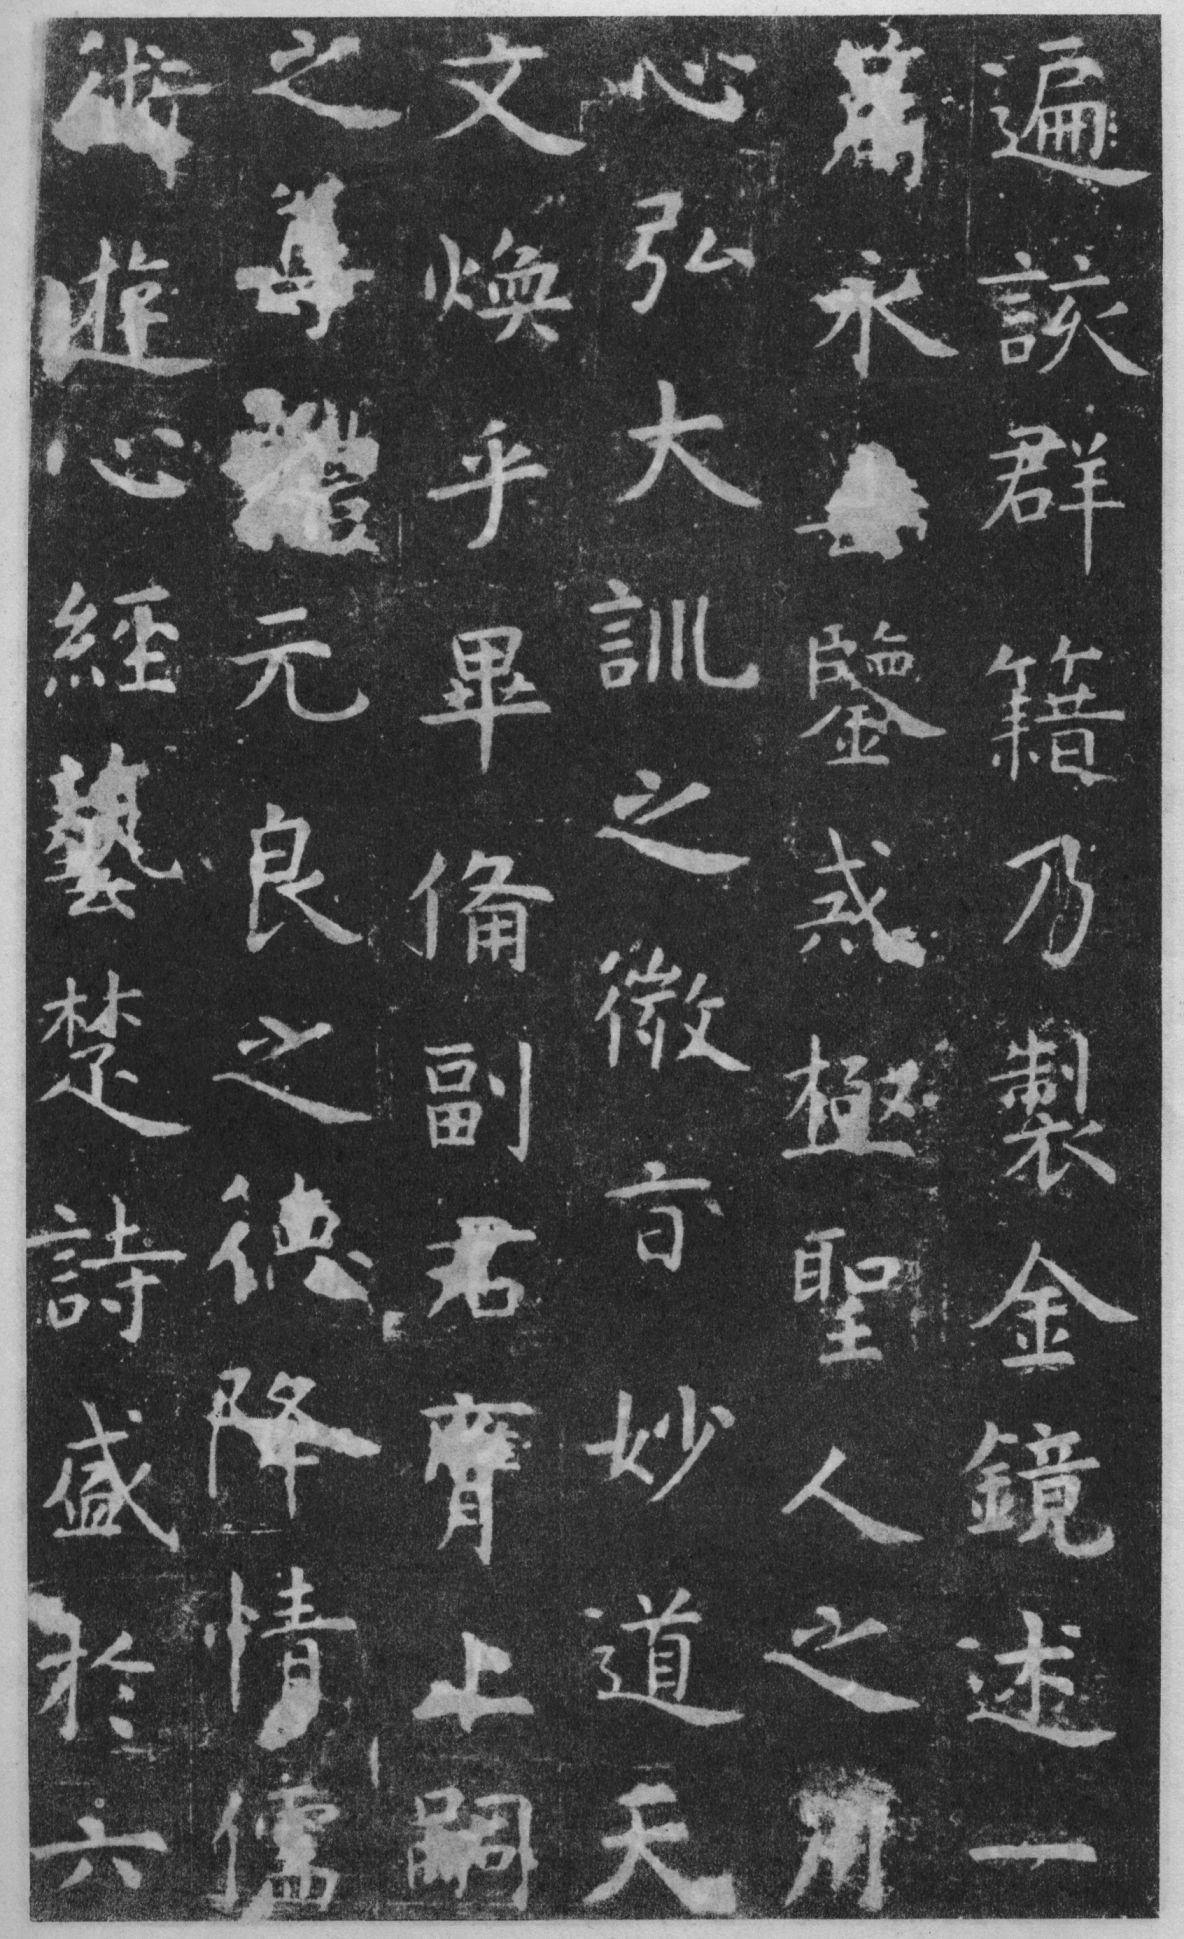 遍該群籍乃製金鏡述一
篇永垂鑒戒極聖人之用
心弘大訓之微旨妙道天
文煥乎畢備副君膺上嗣
之尊體元良之德降情儒
術遊心經藝楚詩盛於六